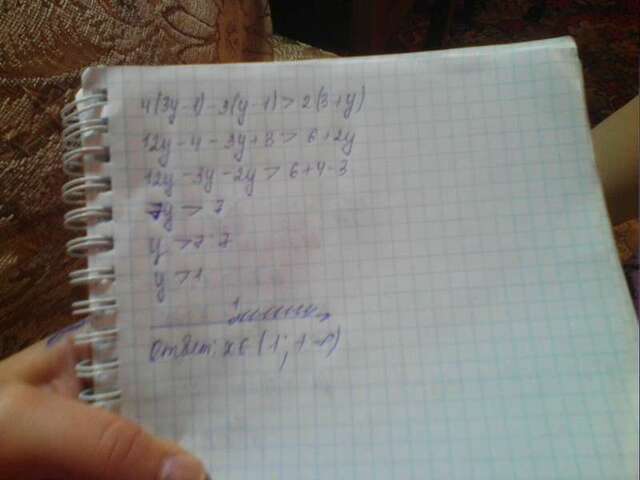 4(3y-1)-3(y-1)>2(3+y)
12y-4-3y+3>6+2y
12y-3y-2y>6+4-3
7y>7
y>7:7
y>1
1
Ответ: xє(1;+∞)